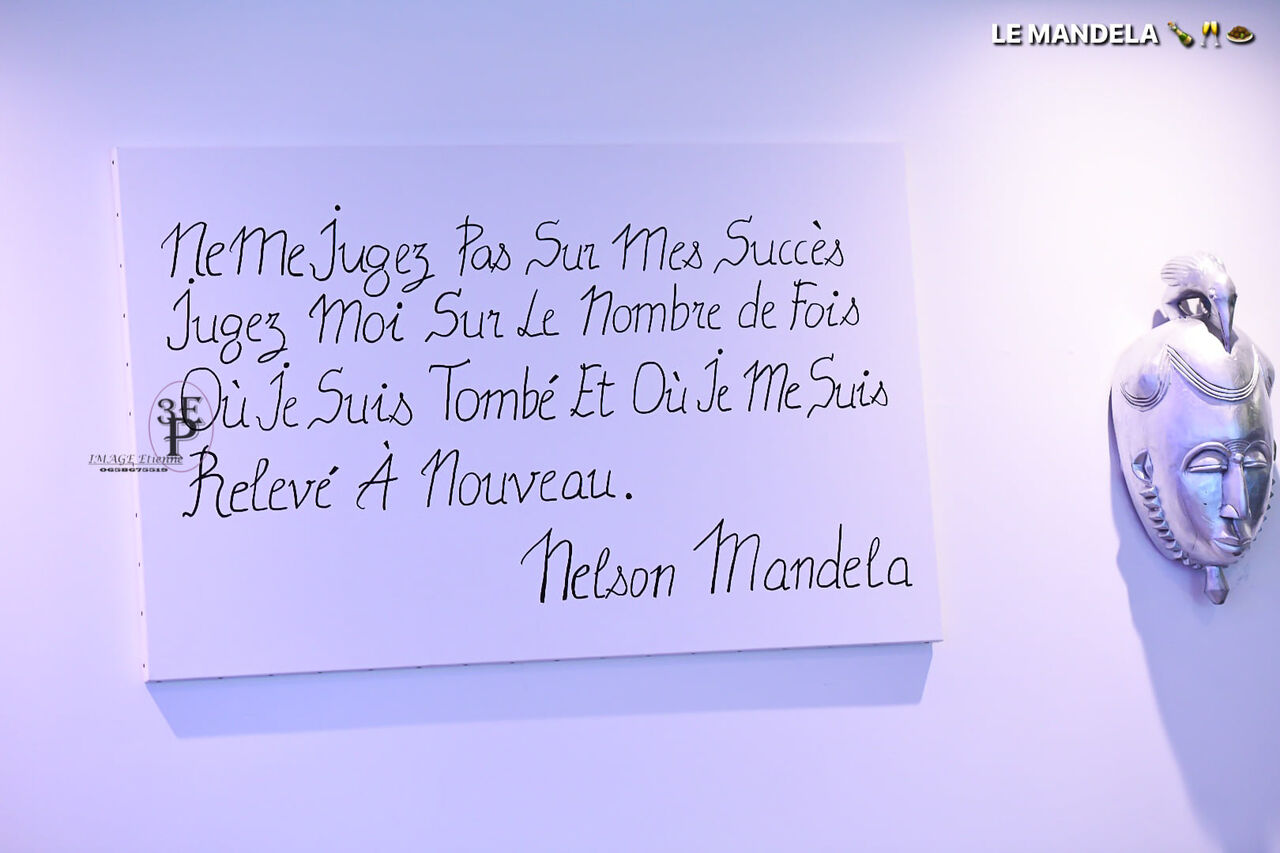 LE MANDELA
Ne Me Jugez Pas Sur Mes Succès
Jugez Moi Sur Le Nombre de Fois
Où Je Suis Tombé Et Où Je Me Suis
Relevé À Nouveau.
Nelson Mandela
3E
P
IMAGE Etienne
0658675519